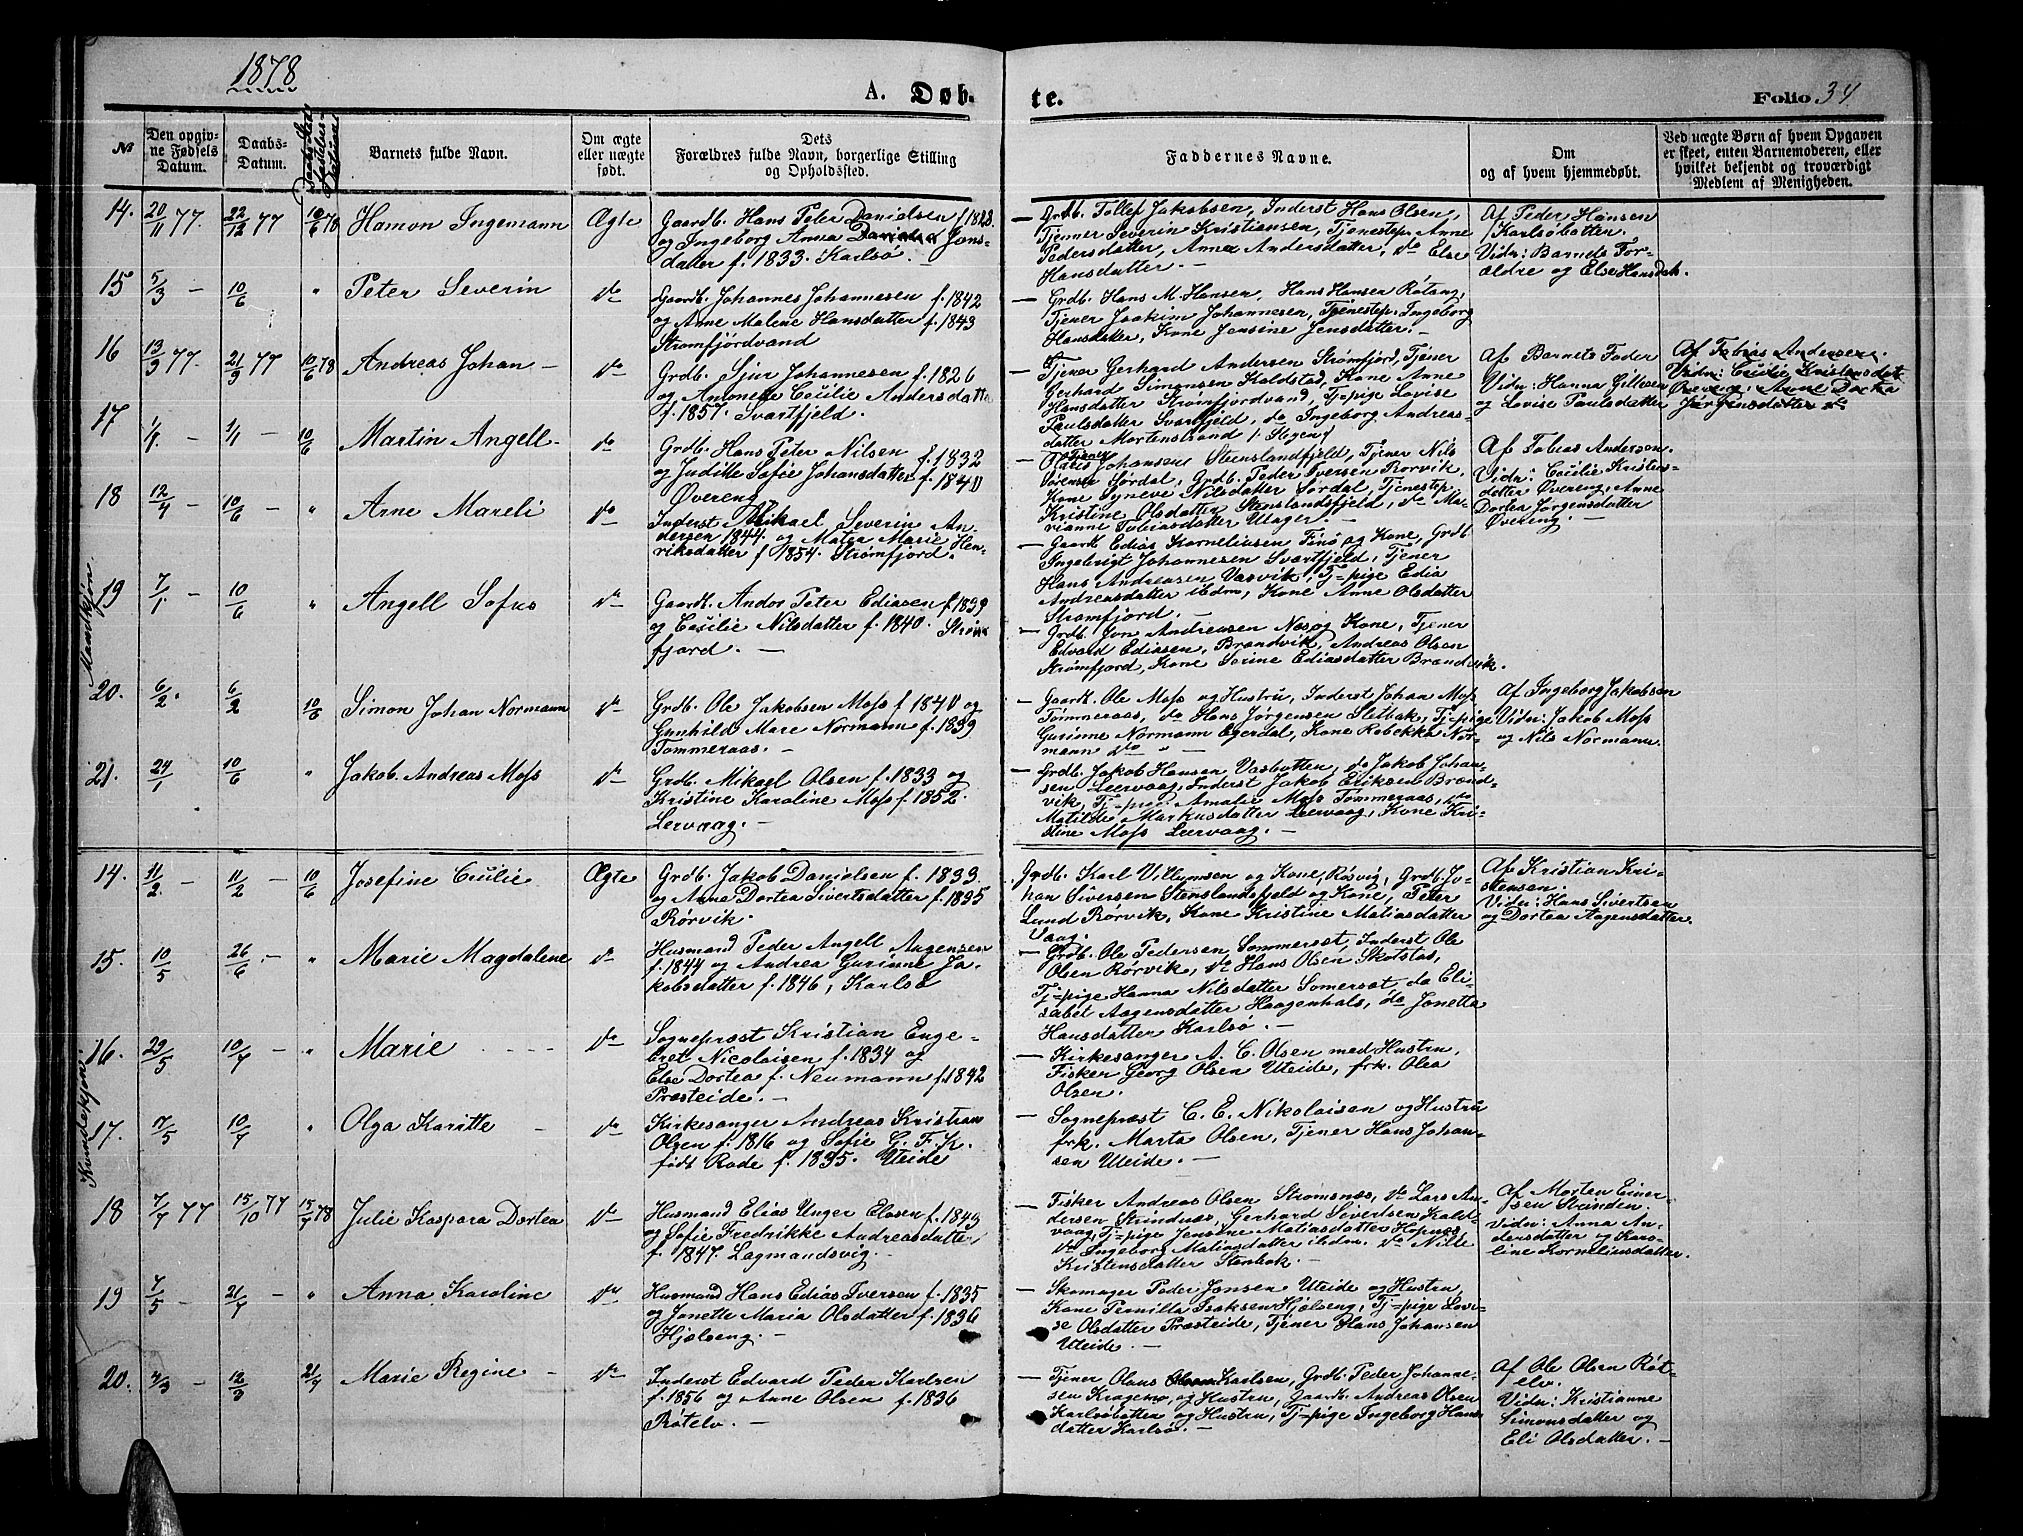 1878
A. Døb-
te.
Folio 34
No
Den opgiv-
ne Fødsels
Datum.
Daabs-
Datum.
Barnets fulde Navn.
Om ægte
eller uægte
født.
Dets
Forældres fulde Navn, borgerlige Stilling
og Opholdssted.
Faddernes Navne.
Om
og af hvem hjemmedøbt.
Ved uægte Børn af hvem Opgaven
er skeet, enten Barnemoderen, eller
hvilket bekjendt og troværdigt
Medlem af Menigheden.
Mandkjøn.
14. 20/11 77 22/12 77 10/6 78 Hamon Ingemann Ægte
Gaardb. Hans Peter Danielsen f. 1823.
og Ingeborg Anna Jons-
datter f. 1833. Karlsø. —
— Grdb. Tollef Jakobsen, Inderst Hans Olsen,
Tjener Severin Kristiansen, Tjenestep. Anne
Pedersdatter, Anna Andersdatter, do Else
Hansdatter. —
Af Peder Hansen
Karlsøbotten.
Vidn: Barnets For-
ældre og Else Hansdat.
15 5/3 — 10/6 " Peter Severin do
Gaardb. Johannes Johannesen f. 1842
og Anne Malene Hansdatter f. 1843
Strømfjordvand
— Grdb. Hans M. Hansen, Hans Hansen Røtang,
Tjener Joakim Johannesen, Tjenestep. Ingeborg
Hansdatter, Kone Jensine Jensdatter. —
16 13/9 77. 21/9 77 10/6 78 Andreas Johan — do
Grdb. Sjur Johannesen f. 1826
og Anonette Cecilie Andersdatter
f. 1857. Svartfjeld.
— Tjener Gerhard Andersen Strømfjord, Tjener
Gerhard Simonsen Kaldstad, Kone Anne
Hansdatter Strømfjordvand, Tj=pige Lovise
Paulsdatter Svartfjeld, do Ingeborg Andreas-
datter Mortenstrand i Stegen
Af Barnets Fader
Vidn: Hanna Gillesen
og Lovise Paulsdatter
Af Tobias Andersen.
Vidn: Cecilie Kristensdat
Øvereng, Anne Dorta
Jørgensdatter do
17 1/1 — 1/1 — 10/6 Martin Angell. do
Grdb. Hans Peter Nilsen f. 1832
og Juditte Sofie Johansdatter f. 1840
Øvereng
— Tjener
Johansen Stenslandsfjeld, Tjener Nils
Sørensen Sørdal, Grdb. Peder Iversen Rørvik,
Kone Synnve Nilsdatter Sørdal, Tjenestep.
Kristine Olsdatter Stenslandsfjeld, do Ma-
rianne Tobiasdatter Utager. —
Af Tobias Andersen.
Vidn: Cecilie Kristens-
datter Øvereng, Anne
Dortea Jørgensdatter
Øvereng. —
18 12/4 — 10/6 — " Arne Mareli do
Inderst Mikael Severin An-
dersen 1844. og Marie Hen-
riksdatter f. 1854. Strømfjord.
— Gaardb. Edias Korneliusen Finø og Kone, Grdb
Ingebrigt Johannesen Svartfjeld, Tjener
Hans Andreasen Vasvik, Tj=pige Edia
Andreasdatter ibdm, Kone Anne Olsdatter
Strømfjord. —
19 7/1 — 10/6 " Angell Sofus do
Gaardb. Andor Peter Ediasen f. 1839
og Cecilie Nilsdatter f. 1840. Strøm-
fjord. —
— Grdb. Jon Andreasen Næs og Kone, Tjener
Edvard Ediasen, Brandvik, Andreas Olsen
Strømfjord, Kone Serine Ediasdatter Brandvik.
20. 6/2 6/2 10/6 Simon Johan Normann do
Grdb. Ole Jakobsen Moss f 1840 og
Gunhild Mare Normann f. 1839
Tømmeraas. —
— Gaardb. Ole Moss og Hustru, Inderst Johan Moss
Tømmeraas, do Hans Jørgensen Sletbak, Tj-pige
Gurianne Normann Egerdal, Kone Rebekka Nor-
mann do —
Af Ingeborg Jakobsen
Vidn: Jakob Moss
og Nils Normann.
21. 24/1 10/6 " Jakob Andreas Moss do
Grdb. Mikael Olsen f. 1833 og
Kristine Karoline Moss f. 1852.
Leervaag. —
— Grdb. Jakob Hansen Vasbotten, do Jakob Johan-
sen Leervaag, Inderst Jakob Eriksen Brand-
vik, Tj=pige Amalie Moss Tømmeraas, do
Matilde Markusdatter Leervaag, Kone Kri-
stine Moss Leervaag. —
Kvindekjøn.
14. 11/2 — 11/2 — 10/6 Josefine Cecilie Ægte
Grdb. Jakob Danielsen f. 1833.
og Anne Dortea Sivertsdatter f. 1835
Rørvik.
Grdb. Karl Villumsen og Kone, Røsvig, Grdb. Jo-
han Siversen Stenslandsfjeld og Kone, Peter
Lund Rørvik, Kone Kristine Matiasdatter
Vaag.
Af Kristian Kri-
stensen.
Vidn: Hans Sivertsen
og Dortea Aagensdatter.
15. 10/5 26/6 — " Marie Magdalene do
Husmand Peder Angell Augensen
f. 1844 og Andrea Gurinne Ja-
kobsdatter f. 1846, Karlsø
— Grdb. Ole Pedersen Sommerset, Inderst Ole
Olsen Rørvik, do Hans Olsen Skotstas,
Tj=pige Hanna Nilsdatter Somerset, do Eli-
sabet Aagensdatter Haagenhals, do Jonetta
Hansdatter Karlsø. —
16. 29/5 10/7 — " Marie do
Sognepræst Kristian Enge-
bret Nicolaisen f. 1834 og
Else Dortea f. Neumann f. 1842
Præsteide. —
— Kirkesanger A. C. Olsen med Hustru,
Fisker Georg Olsen Uteide, frk. Olea
Olsen.
17. 17/5 10/7 " Olga Karitte do
Kirkesanger Andreas Kristian
Olsen f. 1816 og Sofie G. F. K.
født Rode f. 1835. Uteide
— Sognepræst C. E. Nikolaisen og Hustru
frk. Marta Olsen, Tjener Hans Johan-
sen Uteide. —
18 7/7 77 15/10 77 15/7 78 Julie Kaspara Dortea do
Husmand Elias Unger Elasen f. 1843
og Sofie Fredrikke Andreasdatter
f. 1847. Lagmandsvig. —
— Fisker Andreas Olsen Strømsnæs, do Lars An-
dersen Strindnæs, Gerhard Sivertsen Kald-
vaag, Tj=pige Jensine Matiasdatter Hopnes,
do Ingeborg Matiasdatter ibdm. do Nille
Kristensdatter Stenbak. —
Af Morten Einer-
sen Skinden.
Vidn: Anna An-
dersdatter og Karo-
line Korneliusdatter.
19 7/5 — 21/7 — " Anna Karoline do
Husmand Hans Edias Iversen f. 1835
og Jonette Maria Olsdatter f. 1836
Hjelseng. —
— Skomager Peder Jonsen Uteide og Hustru,
Kone Pernilla Isaksen Hjelseng, Tj=pige Lovi-
se Olsdatter Præsteide, Tjener Hans Johansen
Uteide. —
20. 4/3 — 12/3 — 21/7 Marie Regine — do
Inderst Edvard Peder Karlsen
f. 1856 og Anne Olsen f. 1836
Røtelv. —
— Tjener Olaus Karlsen, Grdb. Peder Johanne-
sen Kragemo, og Hustru, Gaardb. Andreas Olsen
Karlsøbotten og Hustru, Tj=pige Ingeborg Hans
datter Karlsø. —
Af Ole Olsen Røt-
elv.
Vidn: Kristianne
Simonsdatter og
Eli Olsdatter. —